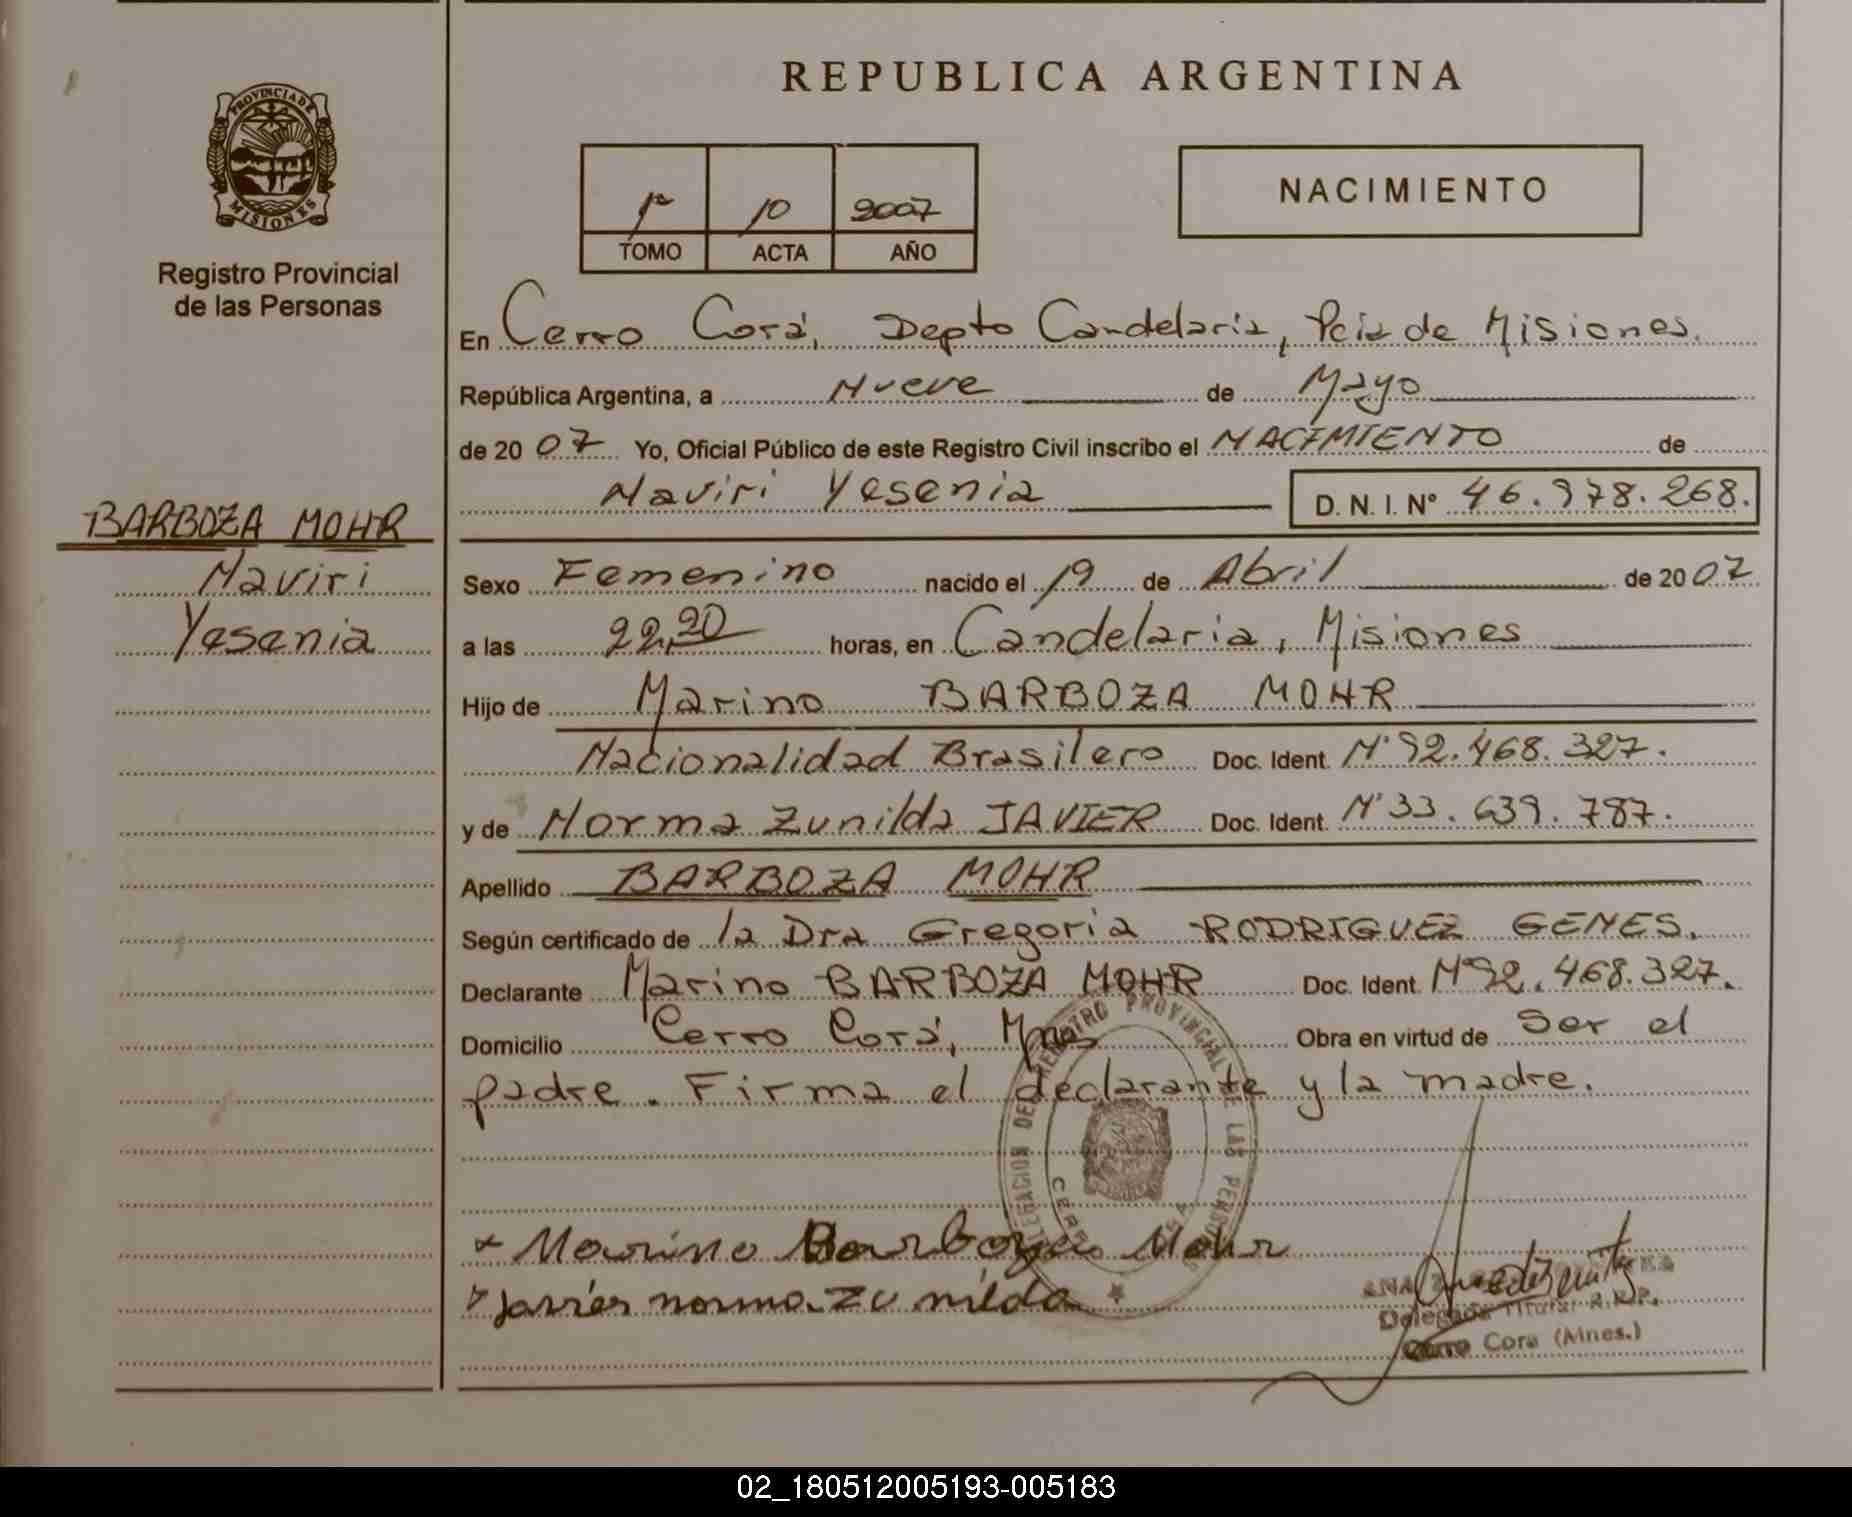 REPUBLICA ARGENTINA
PROVINCIA DE
MISIONES
Registro Provincial
de las Personas
1º 10 2007
TOMO ACTA AÑO
NACIMIENTO
En Cerro Corá, Depto Candelaria, Pcia de Misiones.
República Argentina, a Nueve de Mayo
de 2007 Yo, Oficial Público de este Registro Civil inscribo el NACIMIENTO de
Naviri Yesenia D. N. I. Nº 46.978.268.
BARBOZA MOHR
Naviri
Yesenia
Sexo Femenino nacido el 19 de Abril de 2007
a las 22,20 horas, en Candelaria, Misiones
Hijo de Marino BARBOZA MOHR
Nacionalidad Brasilero Doc. Ident. Nº 92.468.327.
y de Norma Zunilda JAVIER Doc. Ident. Nº 33.639.787.
Apellido BARBOZA MOHR
Según certificado de la Dra Gregoria RODRIGUEZ GENES.
Declarante Marino BARBOZA MOHR Doc. Ident. Nº 92.468.327.
Domicilio Cerro Corá, Mnes Obra en virtud de Ser el
padre. Firma el declarante y la madre.
DELEGACION DEL REGISTRO PROVINCIAL DE LAS PERSONAS
Marino Barboza Mohr
Javier norma zunilda
ANA
Delegada Titular R.P.P.
Cerro Cora (Mnes.)
02_180512005193-005183